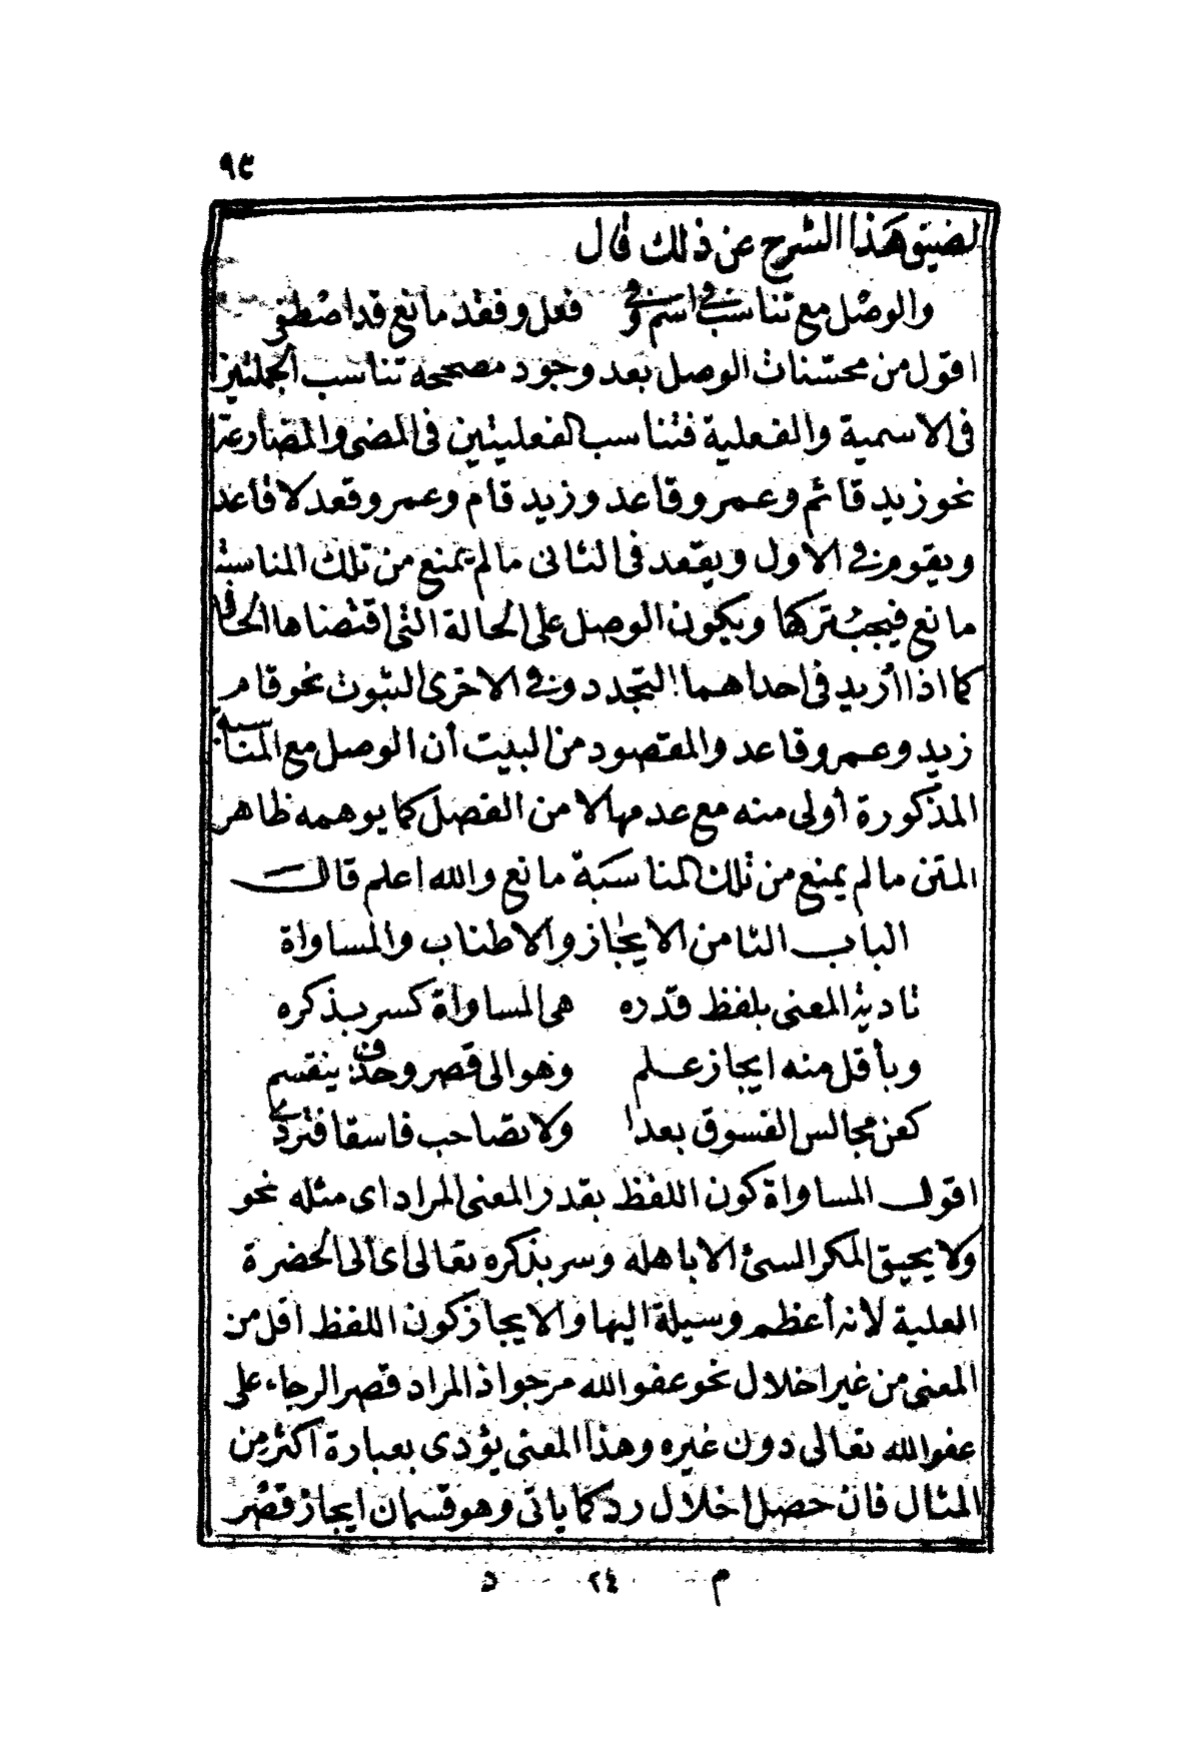 ٩٣
لضيق هذا الشرح عن ذلك قال
والوصل مع تناسب في اسم وفي فعل وفقد مانع قد اصطفي
اقول من محسنات الوصل بعد وجود مصححه تناسب الجملتين
في الاسمية والفعلية فتناسب الفعليتين في المضي والمضارعة
نحو زيد قائم وعمرو قاعد وزيد قام وعمرو قعد لا قاعد
ويقوم في الاول ويقعد في الثاني ما لم يمنع من تلك المناسبة
مانع فيجب تركها ويكون الوصل على الحالة التي اقتضاها الحال
كما اذا أريد في احداهما التجدد وفي الاخرى الثبوت نحو قام
زيد وعمرو قاعد والمقصود من البيت أن الوصل مع المناسبة
المذكورة أولى منه مع عدمها لا من الفصل كما يوهمه ظاهر
المتن ما لم يمنع من تلك المناسبة مانع والله اعلم قال
الباب الثامن الايجاز والاطناب والمساواة
تادية المعنى بلفظ قدره هي المساواة كسر بذكره
وبأقل منه ايجاز علم وهو الى قصر وحذف ينقسم
كعن مجالس الفسوق بعدا ولا تصاحب فاسقا فتردى
اقول المساواة كون اللفظ بقدر المعنى المراد اى مثله نحو
ولا يحيق المكر السئ الا باهله وسر بذكره تعالى اى الى الحضرة
العلية لانه أعظم وسيلة اليها والايجاز كون اللفظ اقل من
المعنى من غير اخلال نحو عفو الله مرجو اذ المراد قصر الرجاء على
عفو الله تعالى دون غيره وهذا المعنى يؤدى بعبارة اكثر من
المثال فان حصل اخلال رد كما ياتى وهو قسمان ايجاز قصر
م ٢٤ د